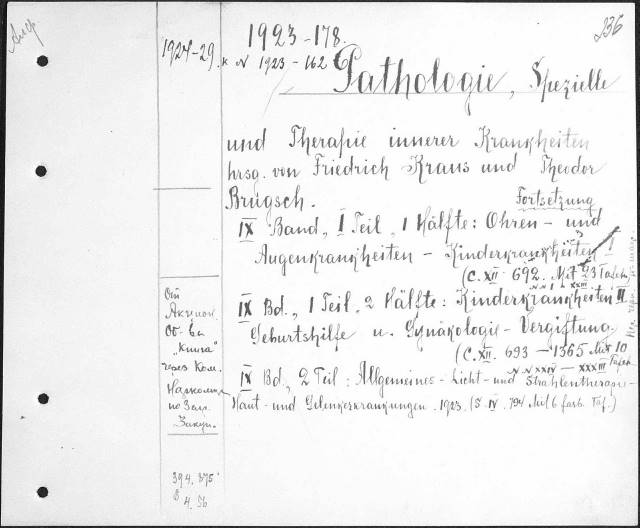 236
1923-178.
1924-29. к N 1923-162
Pathologie, Spezielle
und Therapie innerer Krankheiten
hrsg. von Friedrich Kraus und Theodor
Brugsch.
Fortsetzung
IX Band, I Teil, 1 Hälfte: Ohren- und
Augenkrankheiten - Kinderkrankheiten I
(С. XII. 692. Mit 23 Tafeln
N N I - XXIII
IX Bd., 1 Teil, 2 Hälfte: Kinderkrankheiten II
Geburtshilfe u. Gynäkologie - Vergiftung.
(С. XII. 693 - 1365 Mit 10
Tafeln
N N XXIV - XXXIII
IX Bd., 2 Teil: Allgemeines - Licht- und Strahlentherapie -
Haut- und Gelenkerkrankungen. 1923. (S. IV. 794 Mit 6 farb. Taf.)
От
Акцион.
Об-ва
"Книга"
через Ком.
Наркомпр
по Загр.
Закуп.
394. 875
4. 56